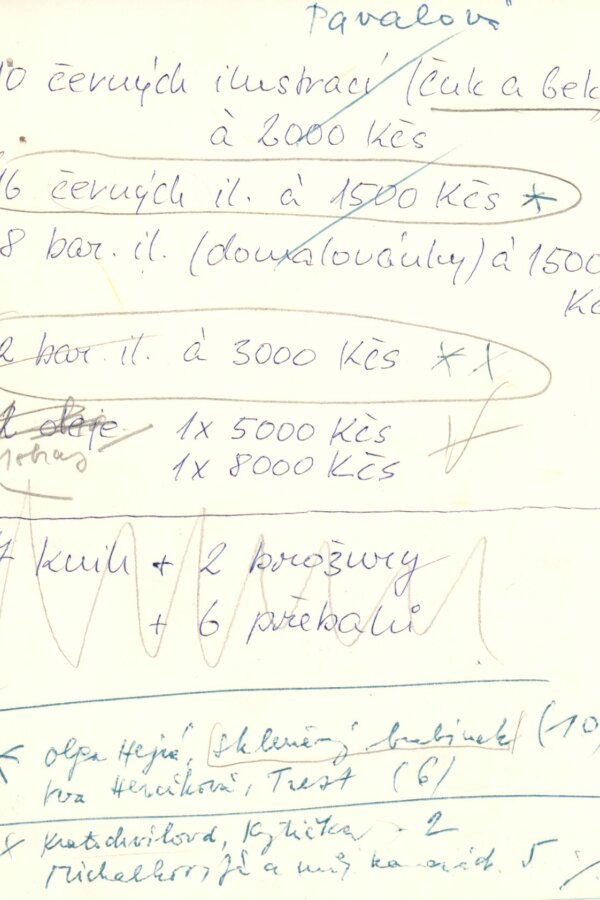 Pavalová
10 černých ilustrací (čuk a bek
à 2000 Kčs
16 černých il. à 1500 Kčs *
8 bar. il. (domalovánky) à 1500
Kč
2 bar. il. à 3000 Kčs * x
2 oleje 1x 5000 Kčs
1x 8000 Kčs
7 knih + 2 brožury
+ 6 přebalů
* Olga Hejná, Skleněný (10
Eva Hercíková, Trest (6)
x Kratochvílová, Kytička - 2
Michalkov, Já a můj kamarád 5